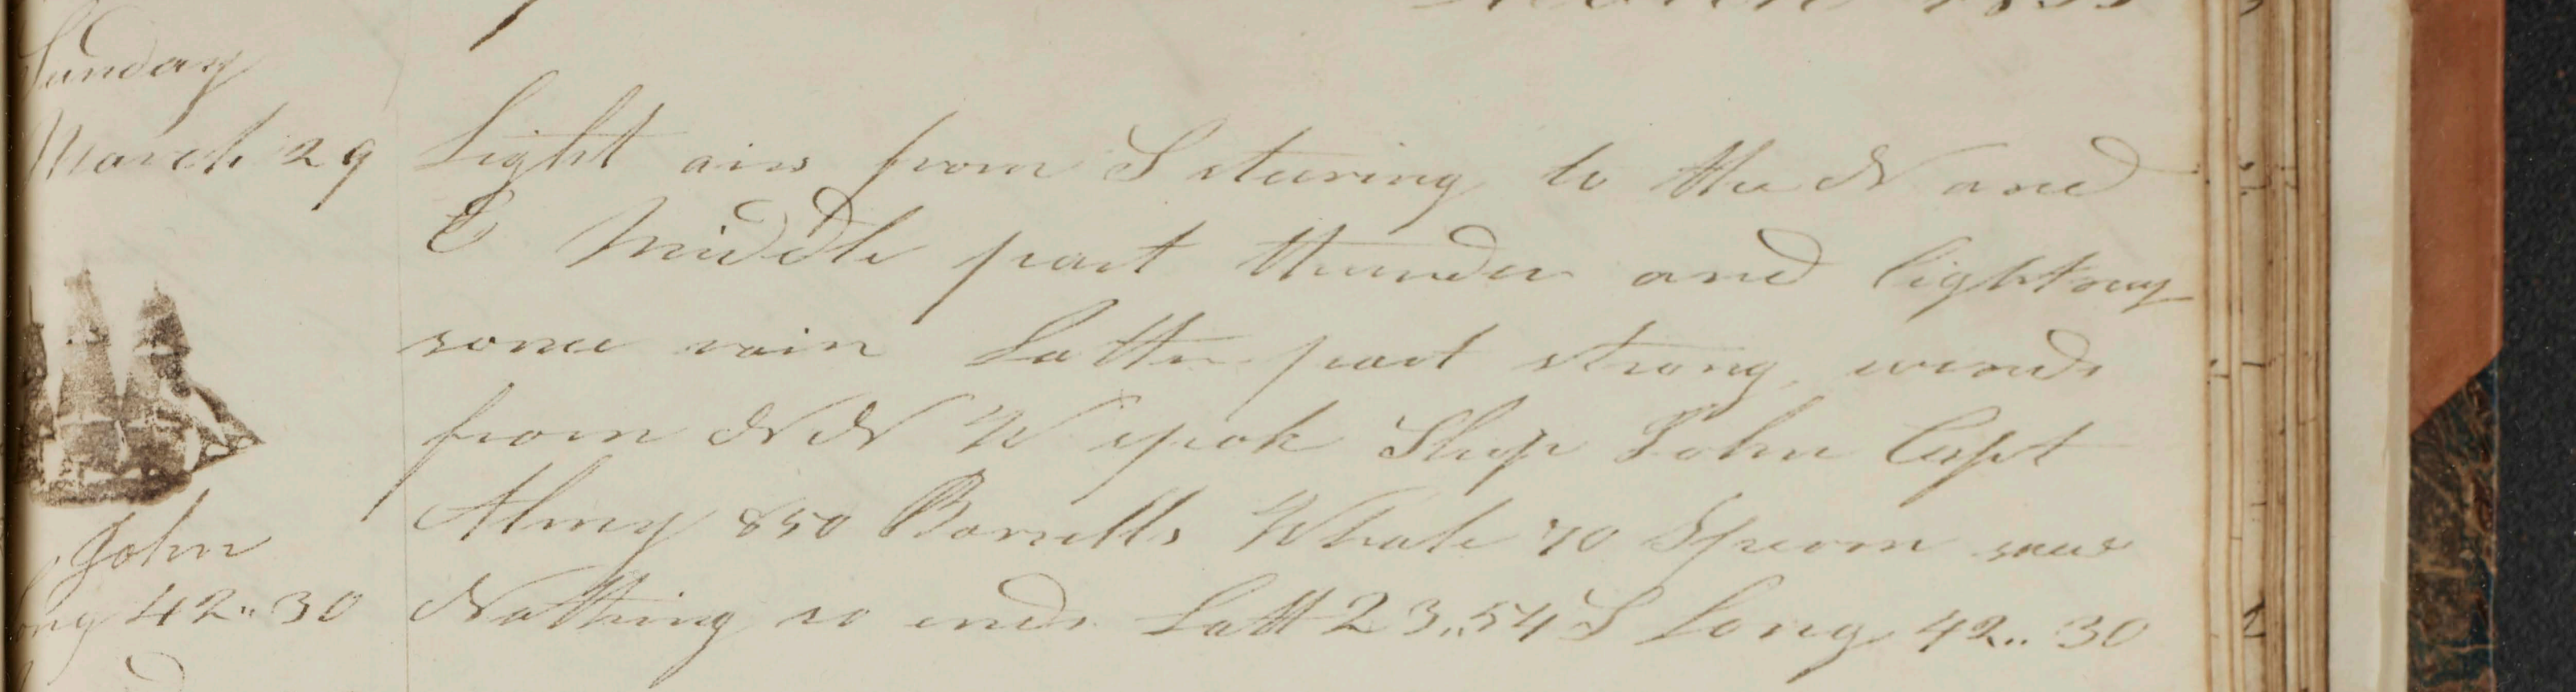 March 1835
Sunday
March 29
Light airs from S stearing to the N and
E Middle part thunder and lightning
some rain Latter part strong winds
from N N W spok Ship John Capt
Almy 850 Barrells Whale 70 Sperm saw
Nothing so ends Latt 23..54 S Long 42..30
John
Long 42..30